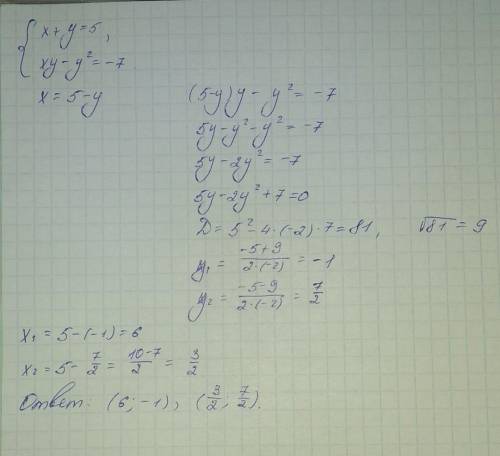 { x + y = 5,
xy - y² = -7
x = 5 - y
(5-y)y - y² = -7
5y - y² - y² = -7
5y - 2y² = -7
5y - 2y² + 7 = 0
D = 5² - 4·(-2)·7 = 81, √81 = 9
y₁ = (-5+9)/(2·(-2)) = -1
y₂ = (-5-9)/(2·(-2)) = 7/2
x₁ = 5 - (-1) = 6
x₂ = 5 - 7/2 = (10-7)/2 = 3/2
Ответ: (6; -1), (3/2; 7/2).